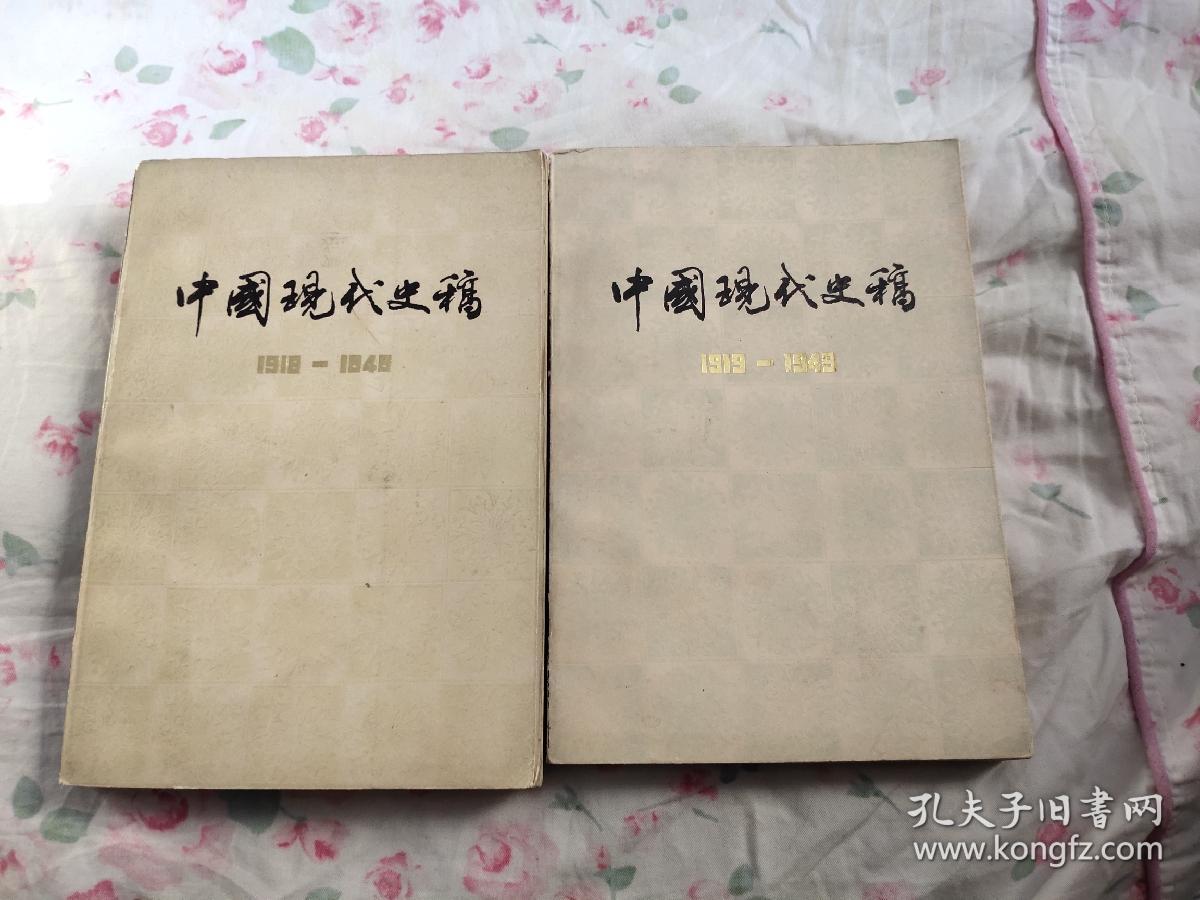 中國現代史稿
1919-1949
中國現代史稿
1919-1949
孔夫子旧書网
www.kongfz.com